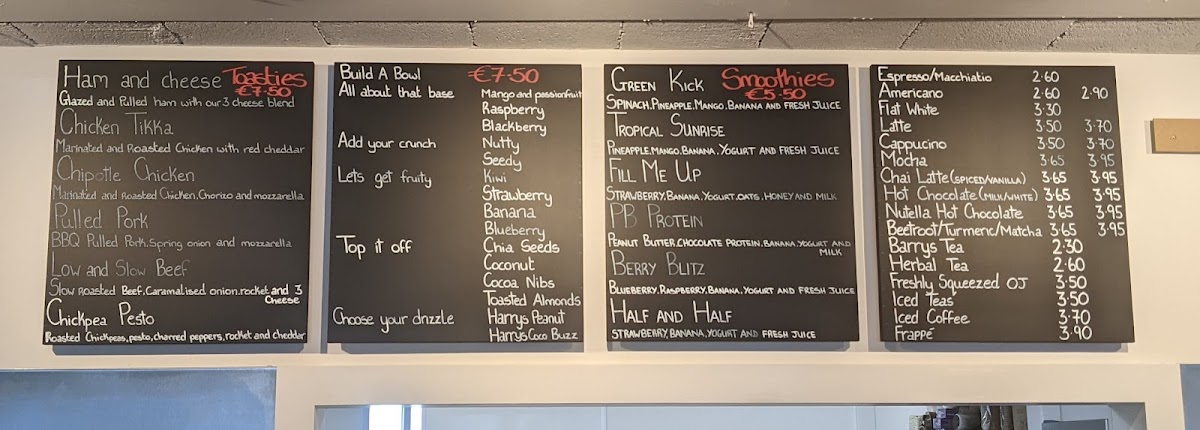 Ham and cheese Toasties
€7.50
Glazed and Pulled ham with our 3 cheese blend
Chicken Tikka
Marinated and Roasted Chicken with red cheddar
Chipotle Chicken
Marinated and Roasted Chicken, Chorizo and mozzarella
Pulled Pork
BBQ Pulled Pork, Spring onion and mozzarella
Low and Slow Beef
Slow Roasted Beef, Caramalised onion, rocket and 3
Cheese
Chickpea Pesto
Roasted Chickpeas, pesto, charred peppers, rocket and cheddar
Build A Bowl €7.50
All about that base Mango and passionfruit
Raspberry
Blackberry
Add your crunch Nutty
Seedy
Lets get fruity Kiwi
Strawberry
Banana
Blueberry
Top it off Chia Seeds
Coconut
Cocoa Nibs
Toasted Almonds
Choose your drizzle Harrys Peanut
Harrys Coco Buzz
Green Kick Smoothies
€5.50
Spinach, Pineapple, Mango, Banana and fresh juice
Tropical Sunrise
Pineapple, Mango, Banana, Yogurt and fresh juice
Fill Me Up
Strawberry, Banana, Yogurt, oats, honey and milk
PB Protein
Peanut Butter, chocolate protein, banana, yogurt and
milk
Berry Blitz
Blueberry, Raspberry, Banana, Yogurt and fresh juice
Half and Half
Strawberry, Banana, Yogurt and fresh juice
Espresso/Macchiatio 2.60
Americano 2.60 2.90
Flat White 3.30
Latte 3.50 3.70
Cappucino 3.50 3.70
Mocha 3.65 3.95
Chai Latte (spiced/vanilla) 3.65 3.95
Hot Chocolate (milk/white) 3.65 3.95
Nutella Hot Chocolate 3.65 3.95
Beetroot/Turmeric/Matcha 3.65 3.95
Barrys Tea 2.30
Herbal Tea 2.60
Freshly Squeezed OJ 3.50
Iced Teas 3.50
Iced Coffee 3.70
Frappé 3.90